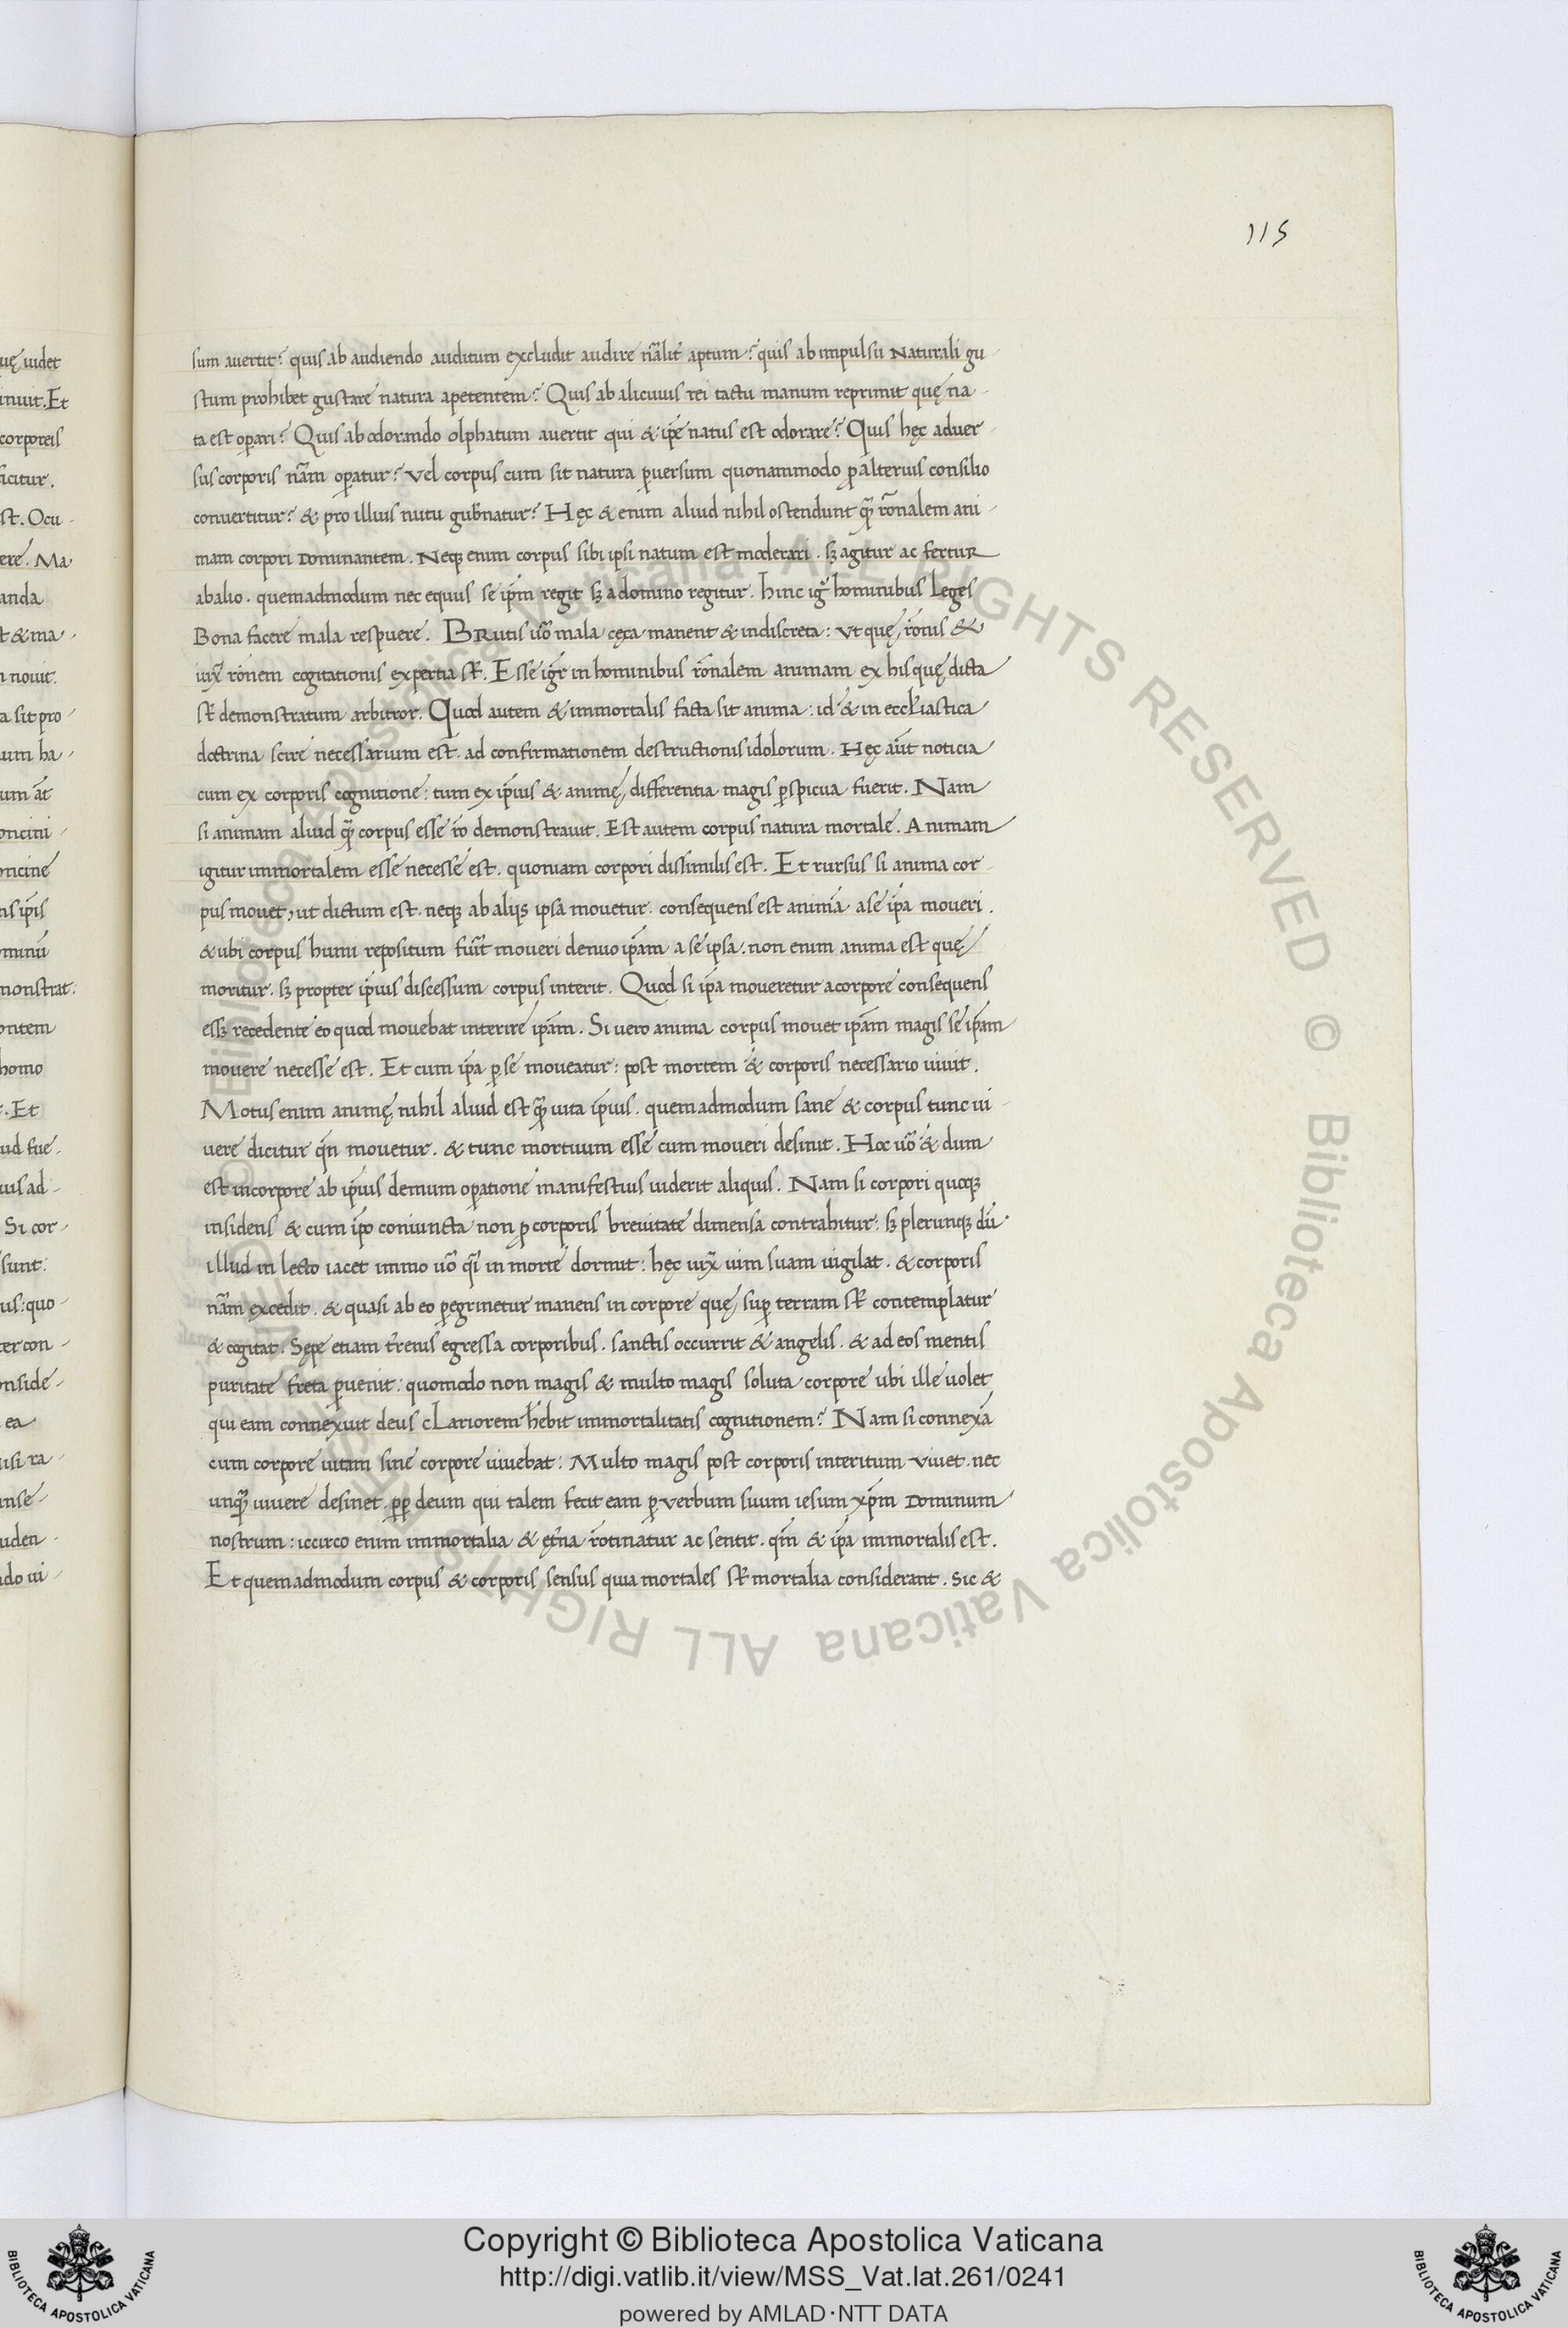 115
sum auertit? quis ab audiendo auditum excludit audire nãlit̃ aptum? quis ab impulsu Naturali gu-
stum prohibet gustare natura apetentem? Quis ab alicuius rei tactu manum reprimit quę na-
ta est op̃ari? Quis ab odorando olphatum auertit qui & ip̃e natus est odorare? Quis hęc aduer-
sus corporis nãm op̃atur? Vel corpus cum sit natura p̱uersum quonammodo p̱ alterius consilio
conuertitur? & pro illius nutu gub̃natur? Hęc & enim aliud nihil ostendunt q̃ rõnalem ani-
mam corpori Dominantem. Neqꝫ enim corpus sibi ipsi natum est moderari. sꝫ agitur ac fertur
ab alio. quemadmodum nec equus se ip̃m regit sꝫ a domino regitur. hinc ig̃ hominibus Leges
Bona facere mala respuere. Brutis uõ mala cęca manent & indiscreta: Vt quę rõnis &
iux̃ rõnem cogitationis expertia sт̃. Esse igr̃ in hominibus rõnalem animam ex his quę dicta
sт̃ demonstratum arbitror. Quod autem & immortalis facta sit anima: id & in eccl̃iastica
doctrina scire necessarium est. ad confirmationem destructionis idolorum. Hęc aũt noticia
cum ex corporis cognitione: tum ex ip̃ius & animę differentia magis p̱spicua fuerit. Nam
si animam aliud q̃ corpus esse rõ demonstrauit. Est autem corpus natura mortale. Animam
igitur immortalem esse necesse est. quoniam corpori dissimilis est. Et rursus si anima cor-
pus mouet, ut dictum est. neqꝫ ab aliis ipsa mouetur. consequens est animã a se ip̃a moueri.
& ubi corpus humi repositum fuĩt moueri denuo ip̃am a se ipsa. non enim anima est quę
moritur. sꝫ propter ip̃ius discessum corpus interit. Quod si ip̃a moueretur a corpore consequens
essꝫ recedente eo quod mouebat interire ip̃am. Si uero anima corpus mouet ip̃am magis se ip̃am
mouere necesse est. Et cum ip̃a p̱ se moueatur: post mortem & corporis necessario uiuit.
Motus enim animę nihil aliud est q̃ uita ip̃ius. quemadmodum sane & corpus tunc ui-
uere dicitur qñ mouetur. & tunc mortuum esse cum moueri desinit. Hoc uõ & dum
est in corpore ab ip̃ius demum op̃atione manifestius uiderit aliquis. Nam si corpori quoqꝫ
insidens & cum ip̃o coniuncta non p̱ corporis breuitate dimensa contrahitur: sꝫ plerunqꝫ dũ
illud in lecto iacet immo uõ q̃i in morte dormit: hęc iux̃ uim suam uigilat. & corporis
nãm excedit. & quasi ab eo p̱egrinetur manens in corpore quę sup̱ terram sт̃ contemplatur
& cogitat. Sępe etiam t̃renis egressa corporibus. sanctis occurrit & angelis. & ad eos mentis
puritate freta p̱uenit: quomodo non magis & multo magis soluta corpore ubi ille uolet
qui eam connexuit deus cLariorem h̃ebit immortalitatis cognitionem? Nam si connexa
cum corpore uitam sine corpore uiuebat: Multo magis post corporis interitum Viuet. nec
unq̃ uiuere desinet. pp̱ deum qui talem fecit eam p̱ verbum suum iesum xp̃m Dominum
nostrum: iccirco enim immortalia & ęt̃na rõtinatur ac sentit. qm̃ & ip̃a immortalis est.
Et quemadmodum corpus & corporis sensus quia mortales sт̃ mortalia considerant. Sic &
Copyright © Biblioteca Apostolica Vaticana
http://digi.vatlib.it/view/MSS_Vat.lat.261/0241
powered by AMLAD·NTT DATA